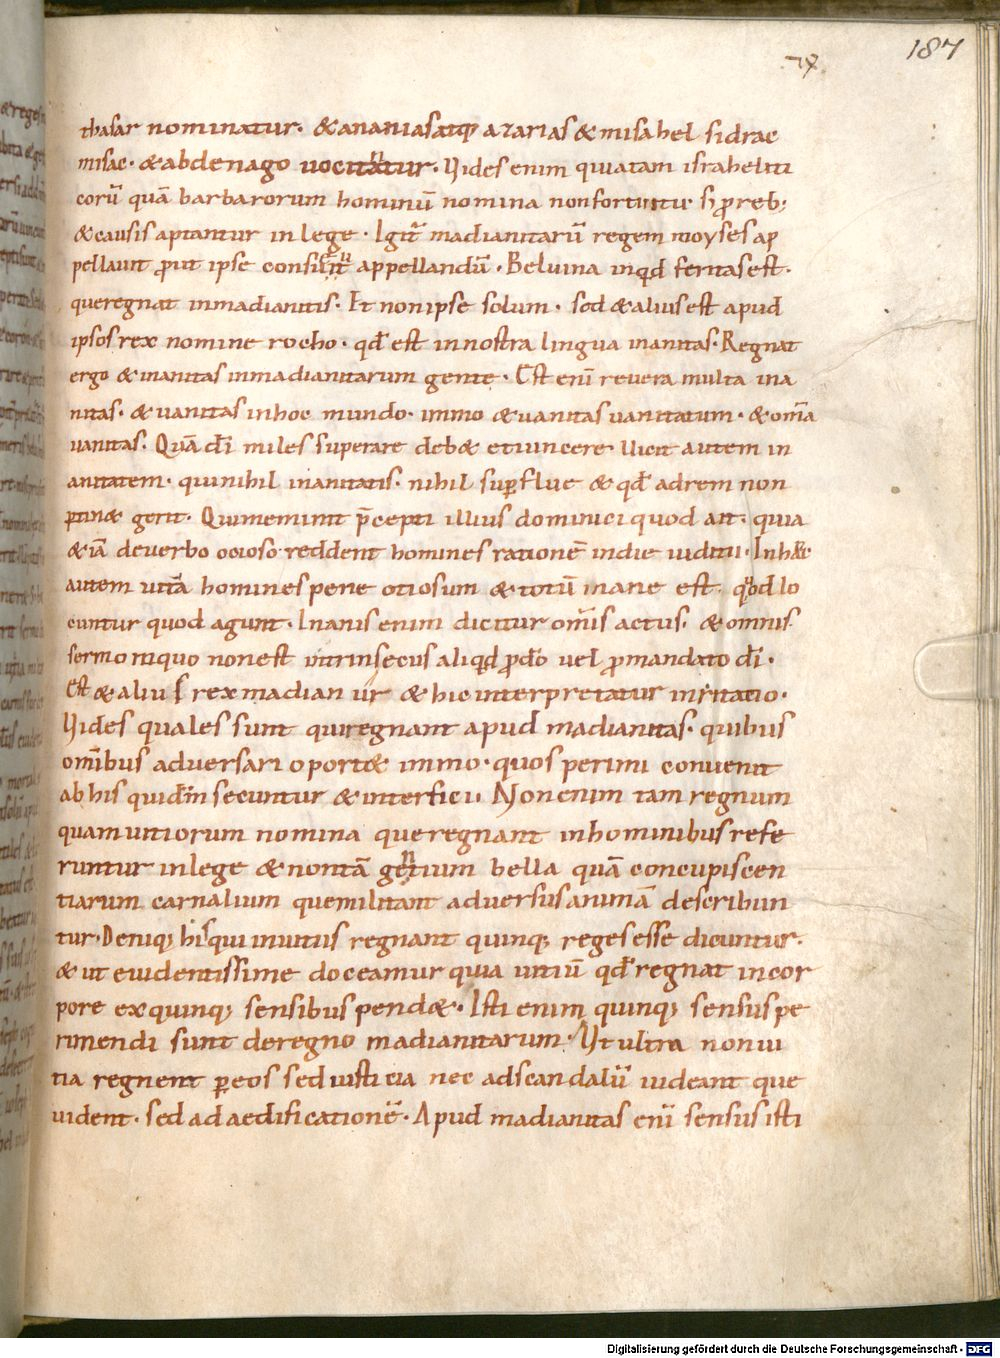 187
thasar nominatur · &ananiasatq; azarias & misahel sidrac
misac · & abdenago uocitatur · Uides enim quia tam israheliti
corū quā barbarorum hominū nomina non fortuitu si p reb;
& causis aptantur in lege · Igit madianitarū regem moyses ap
pellauit prout ipse consuerit appellandū · Beluina inqd feritas est ·
que regnat in madianitis · Et non ipse solum · sed & alius est apud
ipsos rex nomine rocho · qđ est in nostra lingua inanitas · Regnat
ergo & inanitas in madianitarum gente · Est enī reuera multa ina
nitas · & uanitas in hoc mundo · immo & uanitas uanitatum · & omīa
uanitas · Quā dī miles superare deb& et iuncere Uicit autem in
anitatem · qui nihil inanitatis · nihil supflue & qđ ad rem non
ptin& gerit · Qui meminit pcepti illius dominici quod ait · quia
& iā de uerbo ocioso reddent homines rationē in die iuditii · In hac
autem uita homines pene otiosum & totū inane est · quod lo
cuntur quod agunt · Inanis enim dicitur omis actus · & omnis
sermo in quo non est intrinsecus aliqd p dō uel p mandato dī ·
Est & alius rex madian ur & hic interpretatur irritatio ·
Uides quales sunt qui regnant apud madianitas · quibus
omibus aduersari oport& immo · quos perimi conuenit
ab his qui dm secuntur & interfici Non enim tam regnum
quam uitiorum nomina que regnant in hominibus refe
runtur in lege & non tā gentium bella quā concupiscen
tiarum carnalium que militant aduersus animā describun
tur · Deniq; hi qui inuitus regnant quinq; reges esse dicuntur ·
& ut euidentissime doceamur quia uitiū qđ regnat in cor
pore ex quinq; sensibus pend& · Isti enim quinq; sensus pe
rimendi sunt de regno madianitarum · Ut ultra non ui
tia regnent p eos sed iusticia nec ad scandalū uideant que
uident · sed ad aedificationē · Apud madianitas enī sensus isti
Digitalisierung gefördert durch die Deutsche Forschungsgemeinschaft · DFG